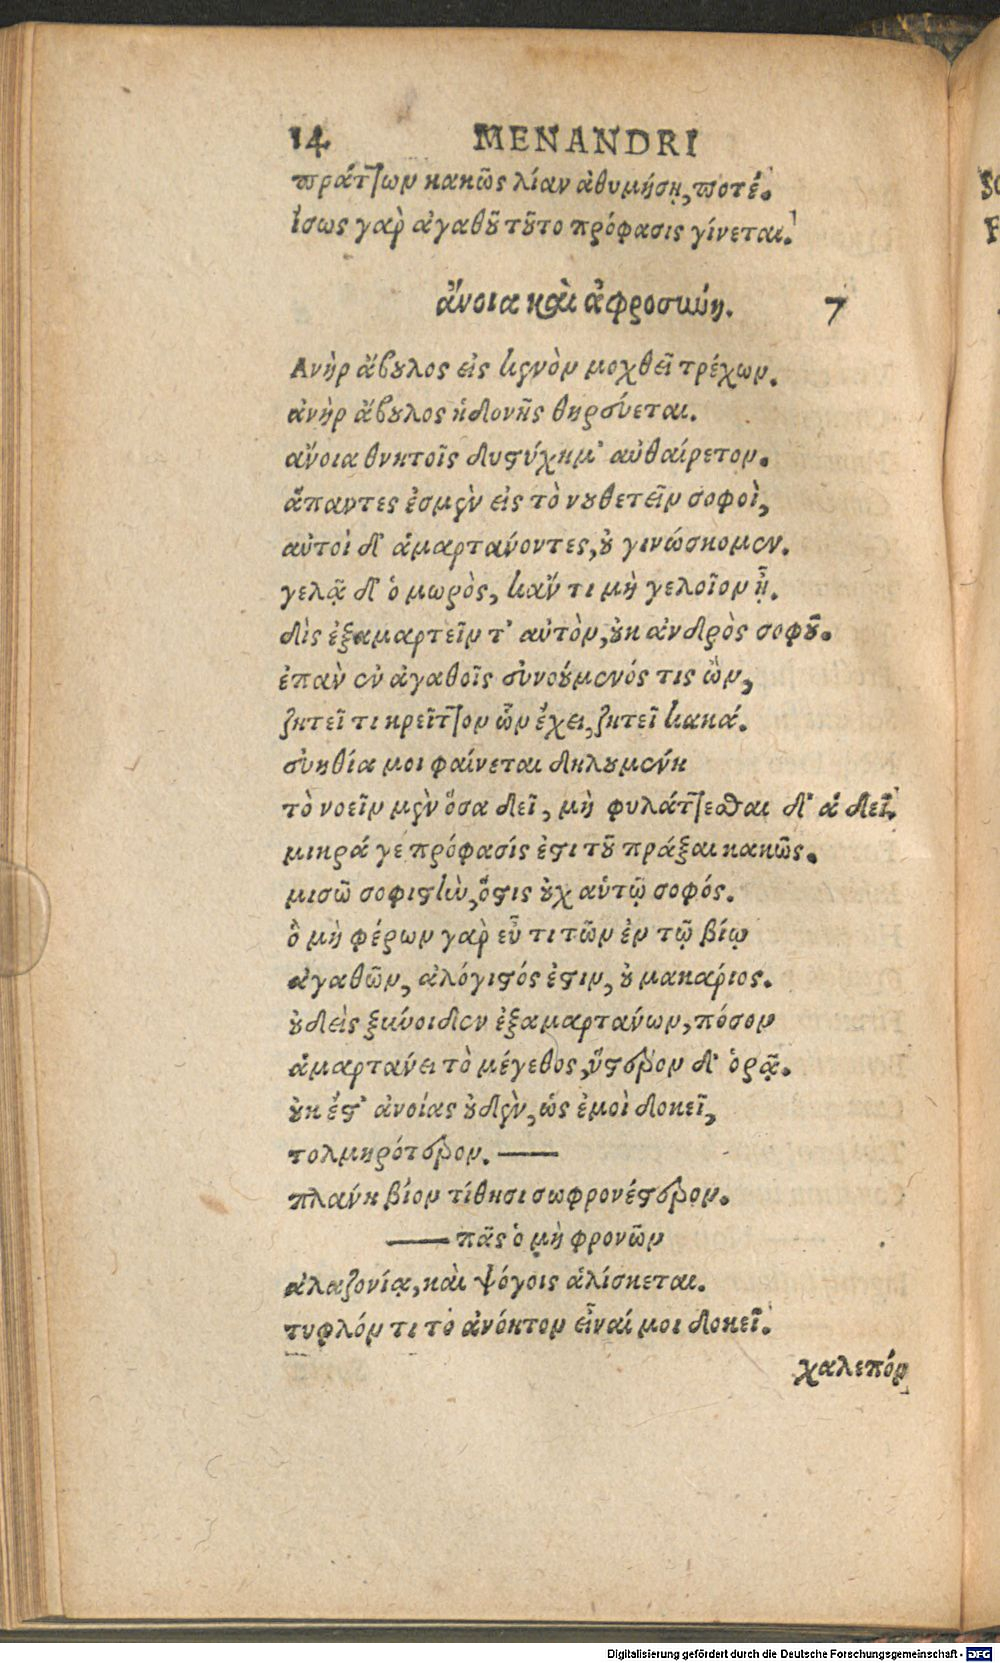 14 MENANDRI
πράττων κακῶς λίαν ἀθυμήσῃς ποτέ.
ἴσως γὰρ ἀγαθοῦ τοῦτο πρόφασις γίνεται.
ἄνοια καὶ ἀφροσύνη. 7
Ανὴρ ἄβουλος εἰς κενὸν μοχθεῖ τρέχων.
ἀνὴρ ἄβουλος ἡδονῆς θηρεύεται.
ἄνοια θνητοῖς δυστύχημ’ αὐθαίρετον.
ἅπαντες ἐσμὲν εἰς τὸ νουθετεῖν σοφοὶ,
αὐτοὶ δ’ ἁμαρτάνοντες, οὐ γινώσκομεν.
γελᾷ δ’ ὁ μωρὸς, κἄν τι μὴ γελοῖον ᾖ.
δὶς ἐξαμαρτεῖν τ’ αὐτὸν, οὐκ ἀνδρὸς σοφοῦ.
ἐπὰν ἐν ἀγαθοῖς εὐνούμενός τις ὢν,
ζητεῖ τι κρεῖττον ὧν ἔχει, ζητεῖ κακά.
εὐηθία μοι φαίνεται δηλουμένη
τὸ νοεῖν μὲν ὅσα δεῖ, μὴ φυλάττεσθαι δ’ ἃ δεῖ.
μικρά γε πρόφασίς ἐστι τοῦ πράξαι κακῶς.
μισῶ σοφιστὴν, ὅστις οὐχ αὑτῷ σοφός.
ὃ μὴ φέρων γὰρ εὖ τι τῶν ἐν τῷ βίῳ
ἀγαθῶν, ἀλόγιστός ἐστιν, οὐ μακάριος.
οὐδεὶς ξύνοιδεν ἐξαμαρτάνων, πόσον
ἁμαρτάνει τὸ μέγεθος, ὕστερον δ’ ὁρᾷ.
οὐκ ἔστ’ ἀνοίας οὐδὲν, ὡς ἐμοὶ δοκεῖ,
τολμηρότερον. ——
πλάνη βίον τίθησι σωφρονέστερον.
—— πᾶς ὁ μὴ φρονῶν
ἀλαζονίᾳ, καὶ ψόγοις ἁλίσκεται.
τυφλόν τι τὸ ἀνόητον εἶναί μοι δοκεῖ.
χαλεπόν
Digitalisierung gefördert durch die Deutsche Forschungsgemeinschaft - DFG